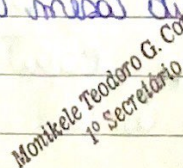 mesa
Monikele Teodoro G. Co
1º Secretário